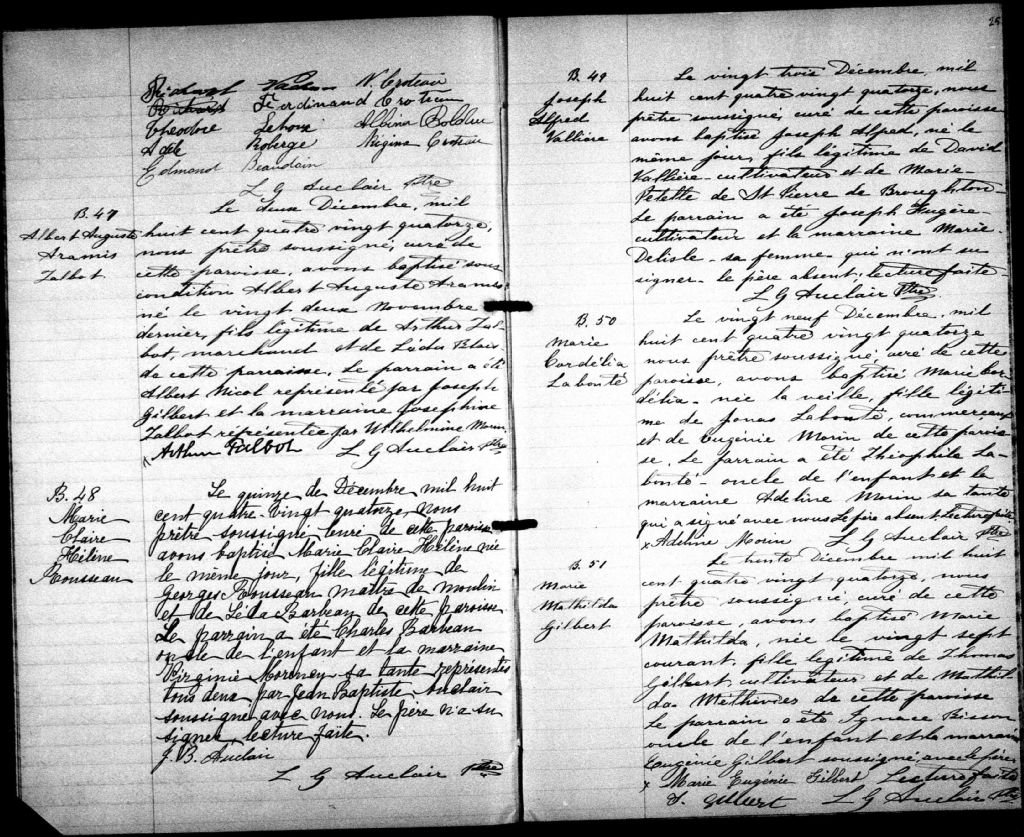 N. Croteau
Ferdinand Croteau
Théodore Albina Bolduc
Roberge Régina Croteau
Edmond Beaudoin
L G Auclair Ptre
B. 47
Albert Auguste
Aramis
Talbot
Le deux Décembre, mil
huit cent quatre vingt quatorze,
nous prêtre soussigné, curé de
cette paroisse, avons baptisé sous
condition Albert Auguste Aramis
né le vingt deux Novembre
dernier, fils légitime de Arthur Tal-
bot, marchand et de Léda Blais
de cette paroisse. Le parrain a été
Albert Nicol représenté par Joseph
Gilbert et la marraine Josephine
Talbot représentée par Wilhelmine Morin.
x Arthur Talbot L G Auclair Ptre
B. 48
Marie
Claire
Hélène
Rousseau
Le quinze de Décembre mil huit
cent quatre-vingt quatorze, nous
prêtre soussigné curé de cette paroisse
avons baptisé Marie Claire Hélène née
le même jour, fille légitime de
Georges Rousseau maître de moulin
et de Léda Barbeau de cette paroisse.
Le parrain a été Charles Barbeau
oncle de l'enfant et la marraine
Virginie sa tante représentés
tous deux par Jean Baptiste Auclair
soussigné avec nous. Le père n'a su
signer, lecture faite.
J. B. Auclair
L G Auclair Ptre
25
B. 49
Joseph
Alfred
Vallière
Le vingt trois Décembre, mil
huit cent quatre vingt quatorze, nous
prêtre soussigné, curé de cette paroisse
avons baptisé Joseph Alfred, né le
même jour, fils légitime de David
Vallière - cultivateur et de Marie-
Petette de St Pierre de Broughton-
Le parrain a été Joseph Fugère-
cultivateur et la marraine Marie-
Delisle - sa femme - qui n'ont su
signer - le père absent, lecture faite-
L G Auclair Ptre.
B. 50
Marie
Cordélia
Labonté
Le vingt neuf Décembre, mil
huit cent quatre vingt quatorze
nous prêtre soussigné, curé de cette
paroisse, avons baptisé Marie Cor-
délia - née la veille, fille légiti-
me de Jonas Labonté, commerçant
et de Eugénie Morin de cette parois-
se. Le parrain a été Théophile La-
bonté - oncle de l'enfant et la
marraine Adeline Morin sa tante
qui a signé avec nous Le père absent. Lecture faite.
x Adeline Morin L G Auclair Ptre
B. 51
Marie
Mathilda
Gilbert
Le trente Décembre mil huit
cent quatre vingt quatorze, nous
prêtre soussigné, curé de cette
paroisse, avons baptisé Marie
Mathilda, née le vingt sept
courant, fille légitime de Thomas
Gilbert cultivateur et de Mathil-
da de cette paroisse
Le parrain a été Ignace Bisson
oncle de l'enfant et la marraine
Eugénie Gilbert soussigné, avec le père,
x Marie Eugénie Gilbert Lecture faite
T. Gilbert L G Auclair Ptre